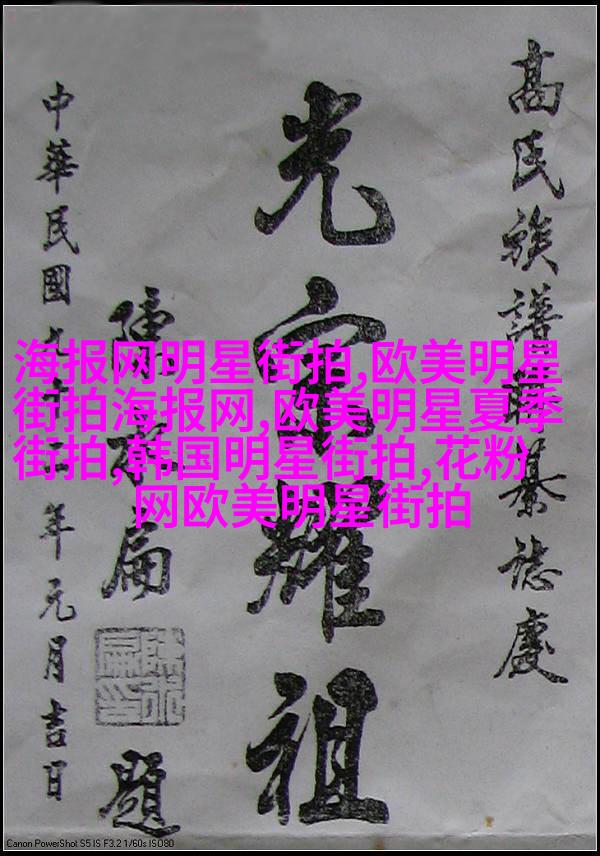 高氏族譜誌慶
光宗耀祖
陳水扁題
中華民國九十二年元月吉日
海报网明星街拍,欧美明星
街拍海报网,欧美明星夏季
街拍,韩国明星街拍,花粉
网欧美明星街拍
Canon PowerShot S5 IS F3.2 1/60s ISO80